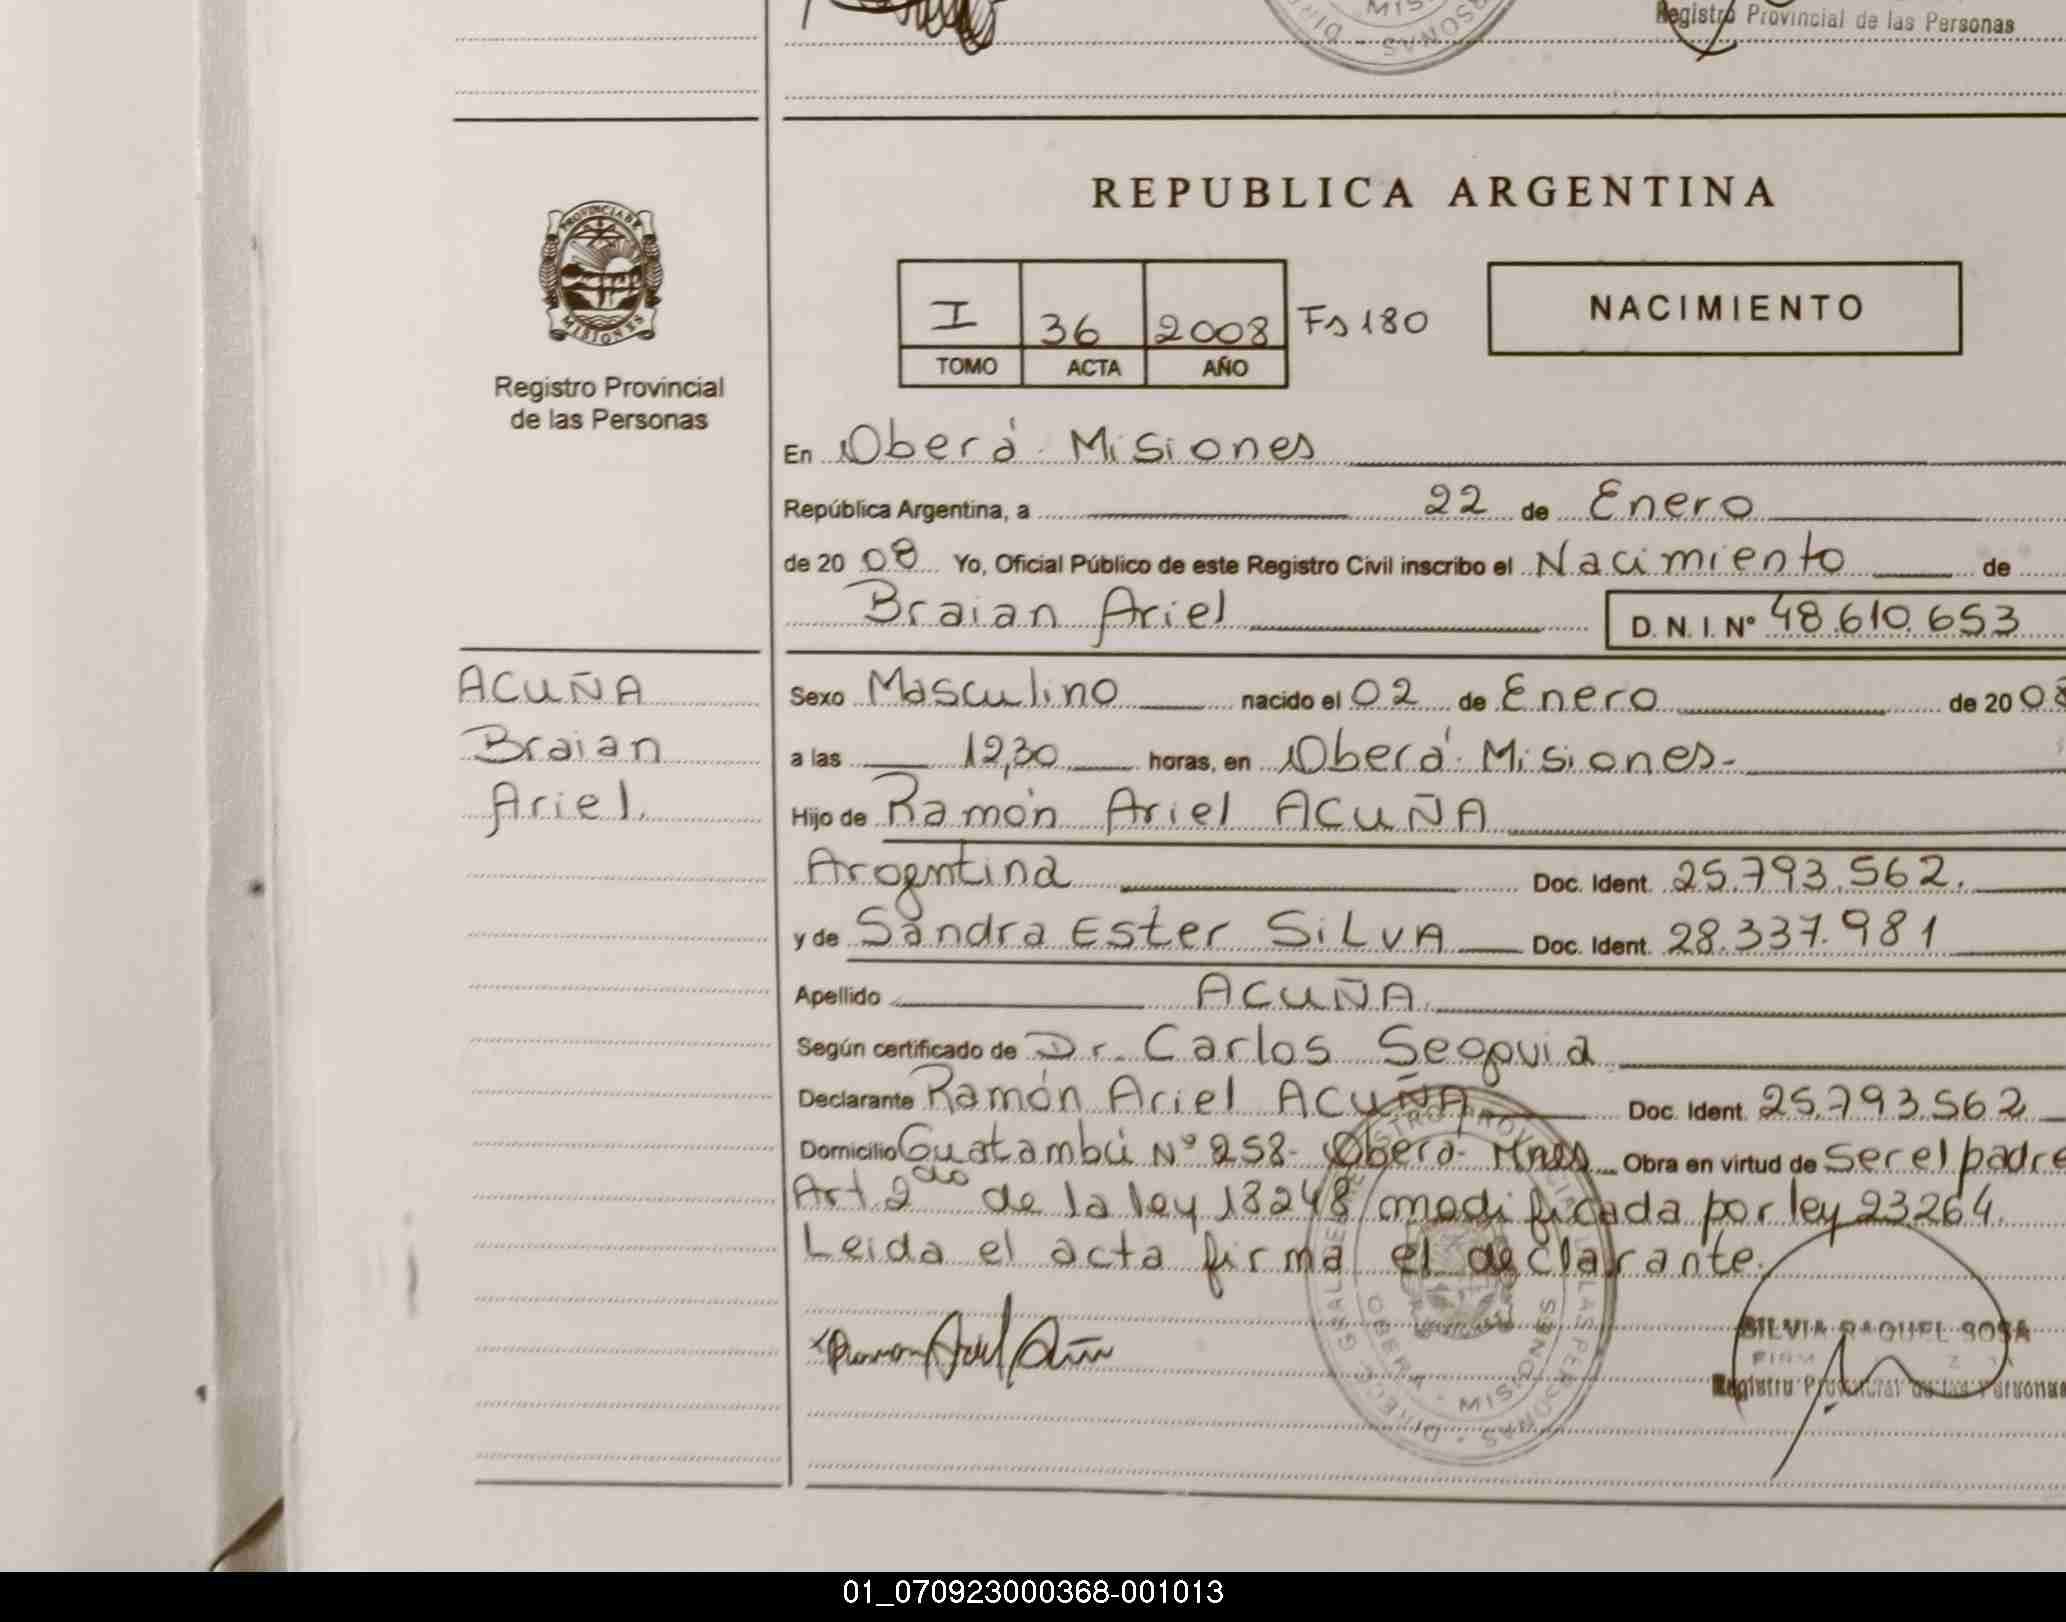 Registro Provincial de las Personas
REPUBLICA ARGENTINA
PROVINCIA DE
MISIONES
Registro Provincial
de las Personas
I 36 2008 Fs 180
TOMO ACTA AÑO
NACIMIENTO
En Oberá - Misiones
República Argentina, a 22 de Enero
de 20 08 Yo, Oficial Público de este Registro Civil inscribo el Nacimiento de
Braian Ariel D. N. I. Nº 48.610.653
ACUÑA
Braian
Ariel.
Sexo Masculino nacido el 02 de Enero de 20 08
a las 12,30 horas, en Oberá - Misiones-
Hijo de Ramón Ariel ACUÑA
Arogentina Doc. Ident. 25.793.562.
y de Sandra Ester SILVA Doc. Ident. 28.337.981
Apellido ACUÑA.
Según certificado de Dr. Carlos Segovia
Declarante Ramón Ariel ACUÑA Doc. Ident. 25.793.562
Domicilio Guatambú Nº 258- Oberá- Mnes Obra en virtud de Ser el padre
Art. 2do de la ley 18248 modificada por ley 23264.
Leida el acta firma el declarante.
Ramon Ariel Acuña
SILVIA RAQUEL SOSA
Registro Provincial de las Personas
OBERA - MISIONES
01_070923000368-001013